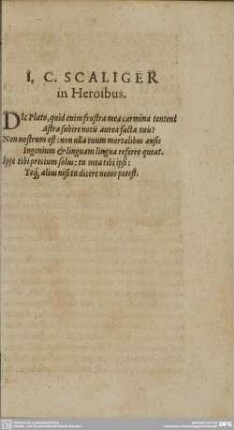 I. C. SCALIGER
in Heroibus.
DIc Plato, quid enim frustra mea carmina tentent
astra subire notu aurea facta tuis?
Non nostrum est: non ulla tuum mortalibus ausis
Ingenium & linguam lingua referre queat.
Ipse tibi precium solus: tu meta tibi ipsi:
Teq́, alius nisi tu dicere nemo potest.